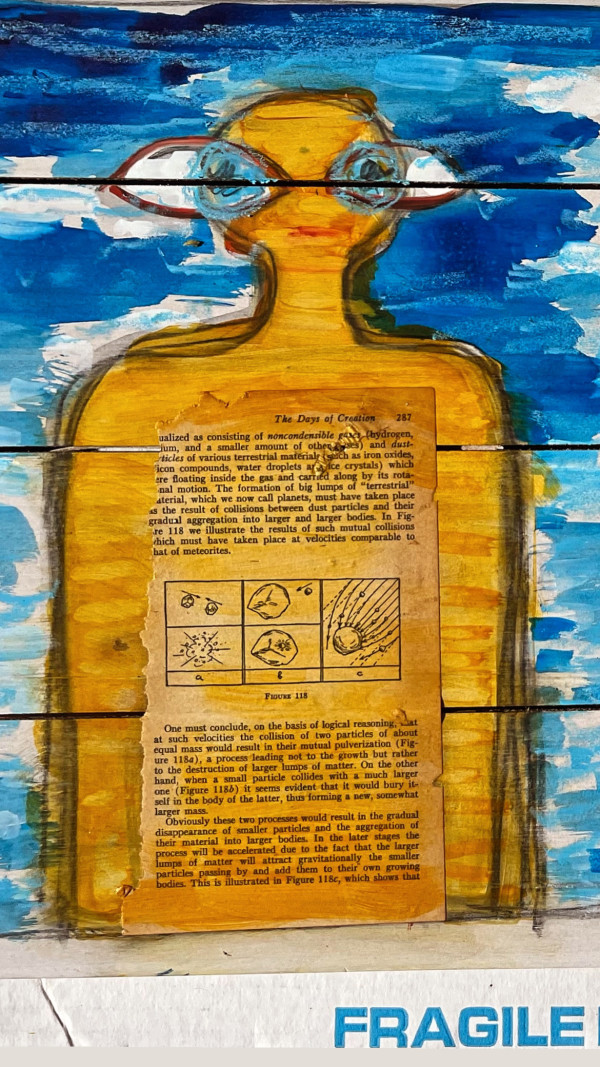 The Days of Creation 287
ualized as consisting of noncondensible gases (hydrogen,
ium, and a smaller amount of other gases) and dust-
rticles of various terrestrial materials (such as iron oxides,
icon compounds, water droplets and ice crystals) which
ere floating inside the gas and carried along by its rota-
nal motion. The formation of big lumps of "terrestrial"
aterial, which we now call planets, must have taken place
as the result of collisions between dust particles and their
gradual aggregation into larger and larger bodies. In Fig-
re 118 we illustrate the results of such mutual collisions
which must have taken place at velocities comparable to
hat of meteorites.
a b c
FIGURE 118
One must conclude, on the basis of logical reasoning, that
at such velocities the collision of two particles of about
equal mass would result in their mutual pulverization (Fig-
ure 118a), a process leading not to the growth but rather
to the destruction of larger lumps of matter. On the other
hand, when a small particle collides with a much larger
one (Figure 118b) it seems evident that it would bury it-
self in the body of the latter, thus forming a new, somewhat
larger mass.
Obviously these two processes would result in the gradual
disappearance of smaller particles and the aggregation of
their material into larger bodies. In the later stages the
process will be accelerated due to the fact that the larger
lumps of matter will attract gravitationally the smaller
particles passing by and add them to their own growing
bodies. This is illustrated in Figure 118c, which shows that
FRAGILE